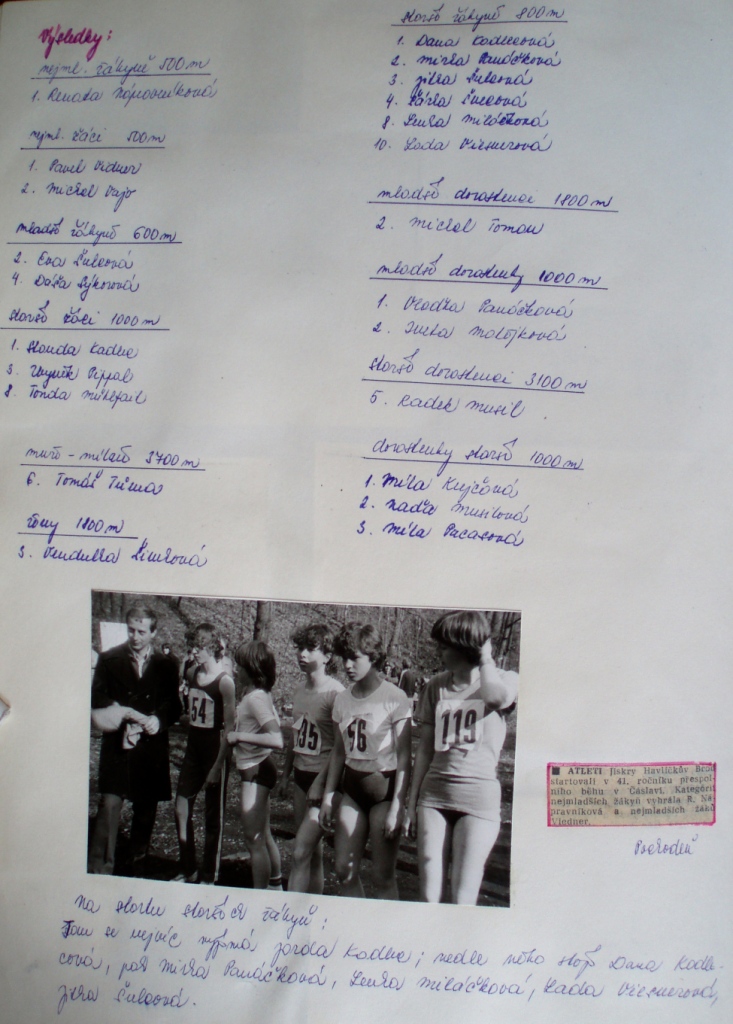 Výsledky:
nejml. žákyně 500 m
1. Renata Nápravníková
nejml. žáci 500 m
1. Pavel Vidner
2. Michal Vajo
mladší žákyně 600 m
2. Eva Šulcová
4. Dáša Sýkorová
starší žáci 1000 m
1. Standa Kadlec
3. Zbyněk Pippal
8. Tonda
muži - míle 3700 m
6. Tomáš Tůma
ženy 1800 m
3. Vendulka Šimková
starší žákyně 800 m
1. Dana Kadlecová
2. Mirka Panáčková
3. Jitka Šulcová
4. Šárka Šulcová
8. Lenka Miláčková
10. Lada Viesnerová
mladší dorostenci 1800 m
2. Michal Toman
mladší dorostenky 1000 m
1. Vlaďka Panáčková
2. Iveta Matějková
starší dorostenci 3100 m
5. Radek Musil
dorostenky starší 1000 m
1. Míla Krejčová
2. Naďa Musilová
3. Míla Pacasová
54
95
96
119
■ ATLETI Jiskry Havlíčkův Brod
startovali v 41. ročníku přespol-
ního běhu v Čáslavi. Kategorii
nejmladších žákyň vyhrála R. Ná-
pravníková a nejmladších žáků
Viedner.
Pochodeň
Na startu starších žákyň:
Tam se nejvíc vyjímá Jarda Kadlec; vedle něho stojí Dana Kadle-
cová, pak Mirka Panáčková, Lenka Miláčková, Lada Viesnerová,
Jitka Šulcová.